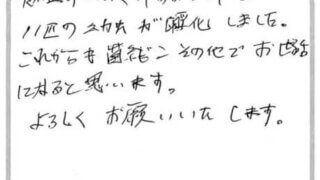 11匹の幼虫が孵化しました。
これからも菌糸ビンその他でお世話
になると思います。
よろしくお願いいたします。